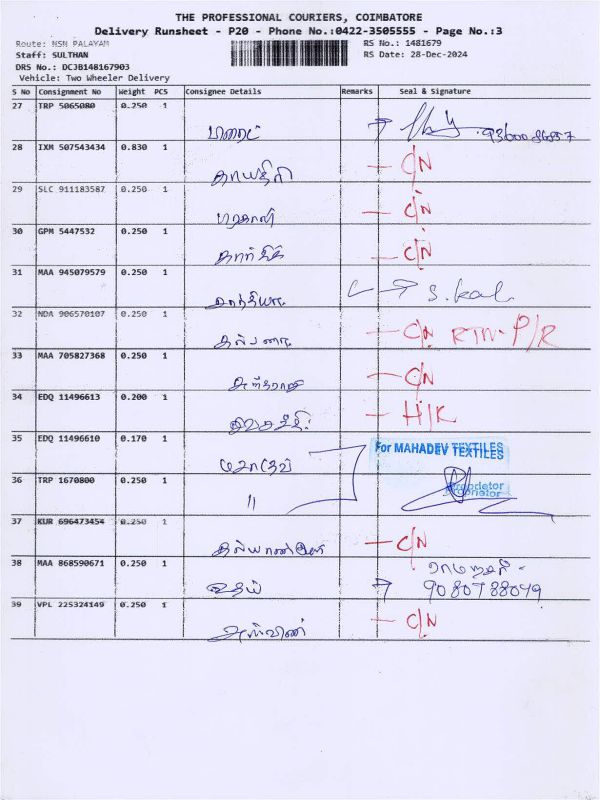 THE PROFESSIONAL COURIERS, COIMBATORE
Delivery Runsheet - P20 - Phone No.:0422-3505555 - Page No.:3
Route: NSN PALAYAM RS No.: 1481679
Staff: SULTHAN RS Date: 28-Dec-2024
DRS No.: DCJB148167903
Vehicle: Two Wheeler Delivery
S No Consignment No Weight PCS Consignee Details Remarks Seal & Signature
27 TRP 5065080 0.250 1
28 IXM 507543434 0.830 1
காயத்ரி C/N
29 SLC 911183587 0.250 1
C/N
30 GPM 5447532 0.250 1
கார்த்திக் C/N
31 MAA 945079579 0.250 1
S. Kal
32 NDA 906570107 0.250 1
கல்பனா C/N RTN-P/R
33 MAA 705827368 0.250 1
C/N
34 EDQ 11496613 0.200 1
H/K
35 EDQ 11496610 0.170 1
மகாதேவ் For MAHADEV TEXTILES
36 TRP 1670800 0.250 1
" Proprietor
37 KUR 696473454 0.250 1
C/N
38 MAA 868590671 0.250 1
உதய் 9080788049
39 VPL 225324149 0.250 1
C/N